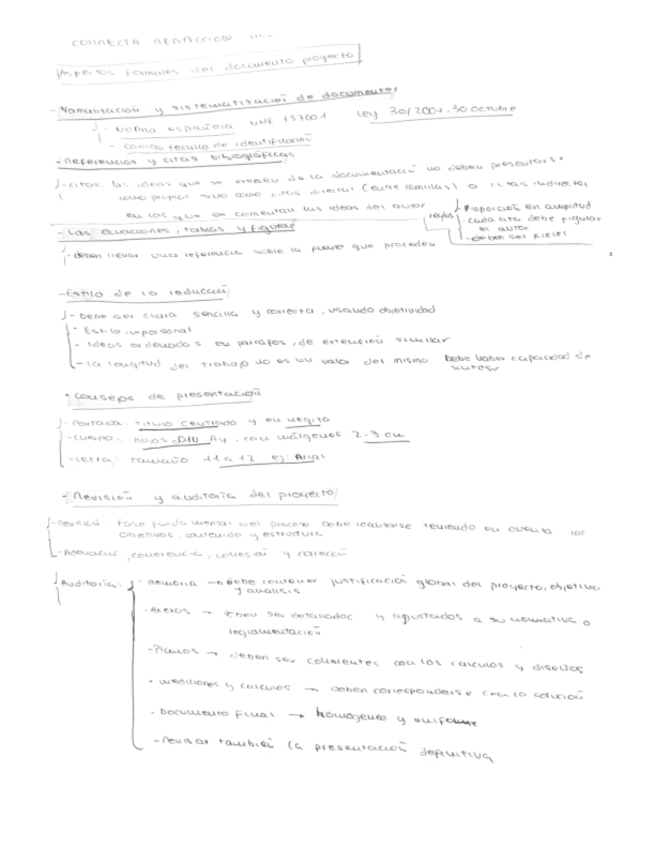 CORRECTA REDACCION
Aspectos formales del documento proyecto
- Normalización y sistematización de documentos
- Norma española UNE 157001 ley 30/2007, 30 octubre
- código técnico de identificación
- Referencias y citas bibliográficas
- citar: las ideas que se extraen de la documentación no deben presentarse
como propias sino como citas directas (entre comillas) o citas indirectas
en las que se comentan las ideas del autor
reglas
Proporción en amplitud
- cada cita debe figurar
el autor
- deben ser fieles
- Las ecuaciones, tablas y figuras
- deben llevar una referencia sobre la fuente que proceden
- Estilo de la redacción
- Debe ser clara sencilla y correcta, usando objetividad
- Estilo impersonal
- Ideas ordenadas en párrafos, de extensión similar
- la longitud del trabajo no es un valor del mismo. Debe haber capacidad de
síntesis
- Consejos de presentación
- Portada: título centrado y en negrita
- cuerpo: hojas DIN A4, con márgenes 2-3 cm
- letra: tamaño 11 a 12 ej: Arial
- Revisión y auditoría del proyecto
- Revisión fase fundamental del proceso debe realizarse teniendo en cuenta los
objetivos, contenido y estructura
- Adecuación, coherencia, cohesión y corrección
Auditoría:
- Memoria → debe contener justificación global del proyecto, objetivo
y análisis
- Anexos → deben ser detallados y ajustados a su normativa o
reglamentación
- Planos → deben ser coherentes con los cálculos y diseños
- mediciones y cálculos → deben corresponderse con la solución
- Documento Final → homogéneo y uniforme
- Revisar también la presentación definitiva